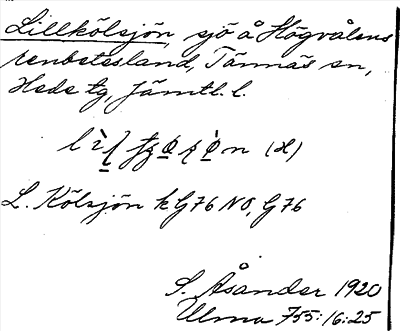 Lillkölsjön, sjö å Högvålens
renbetesland, Tännäs sn,
Hede tg, Jämtl. l.
L. Kölsjön k G76 NO, G76
S. Åsander 1920
Ulma 755:16:25